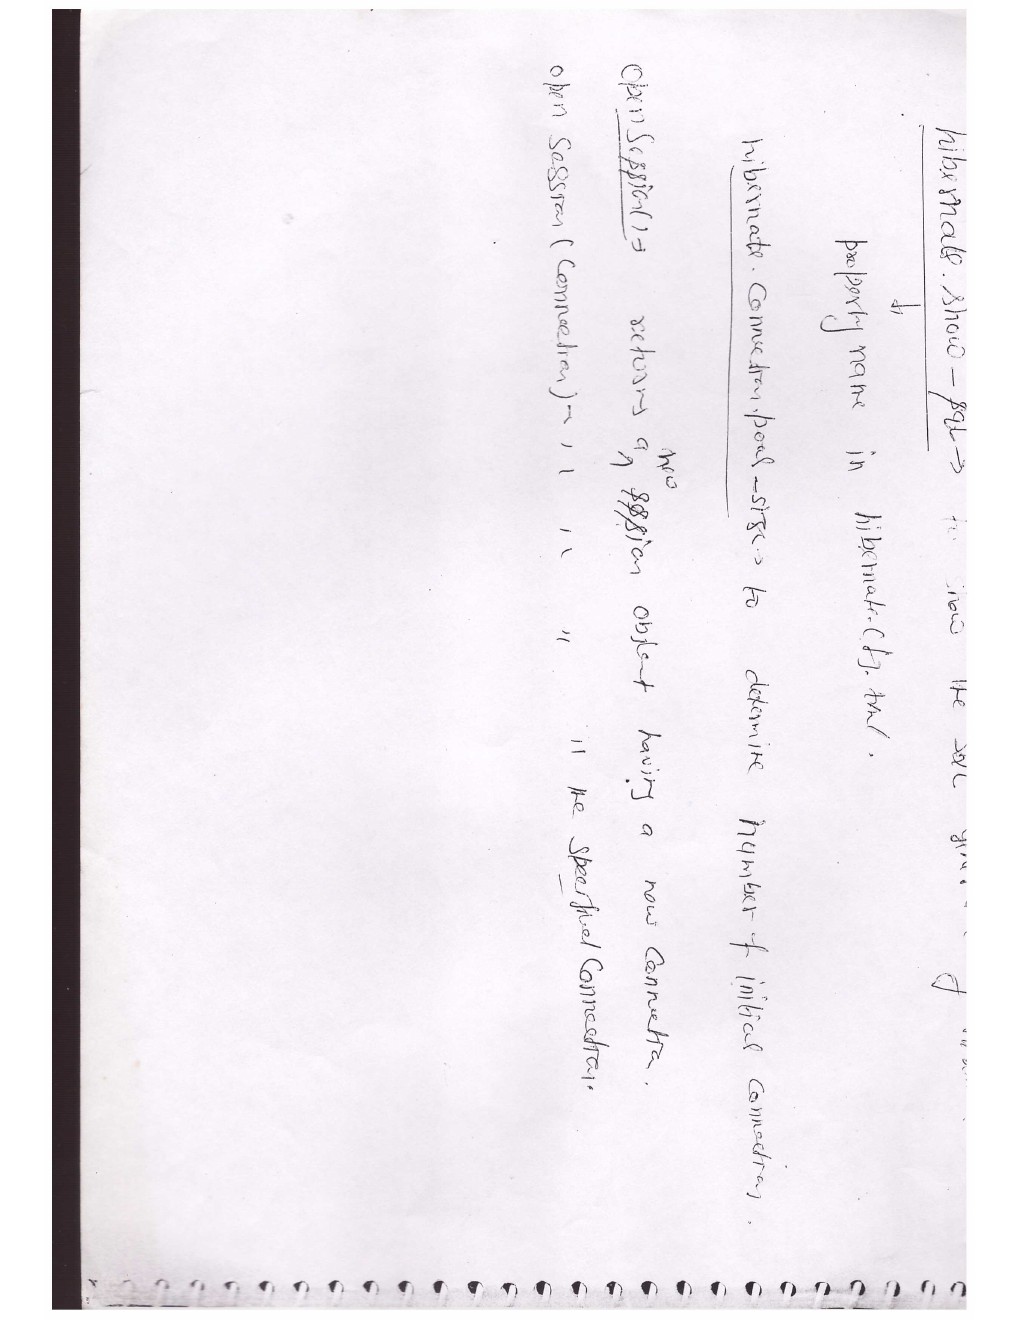 hibernate.show-sql → to show the sql
↓
property name in hibernate.cfg.xml.
hibernate.connection.pool-size → to determine number of initial connection.
new
openSession() → returns a ^ session object having a new connection.
open Session (Connection) → " " " " " the specified Connection.